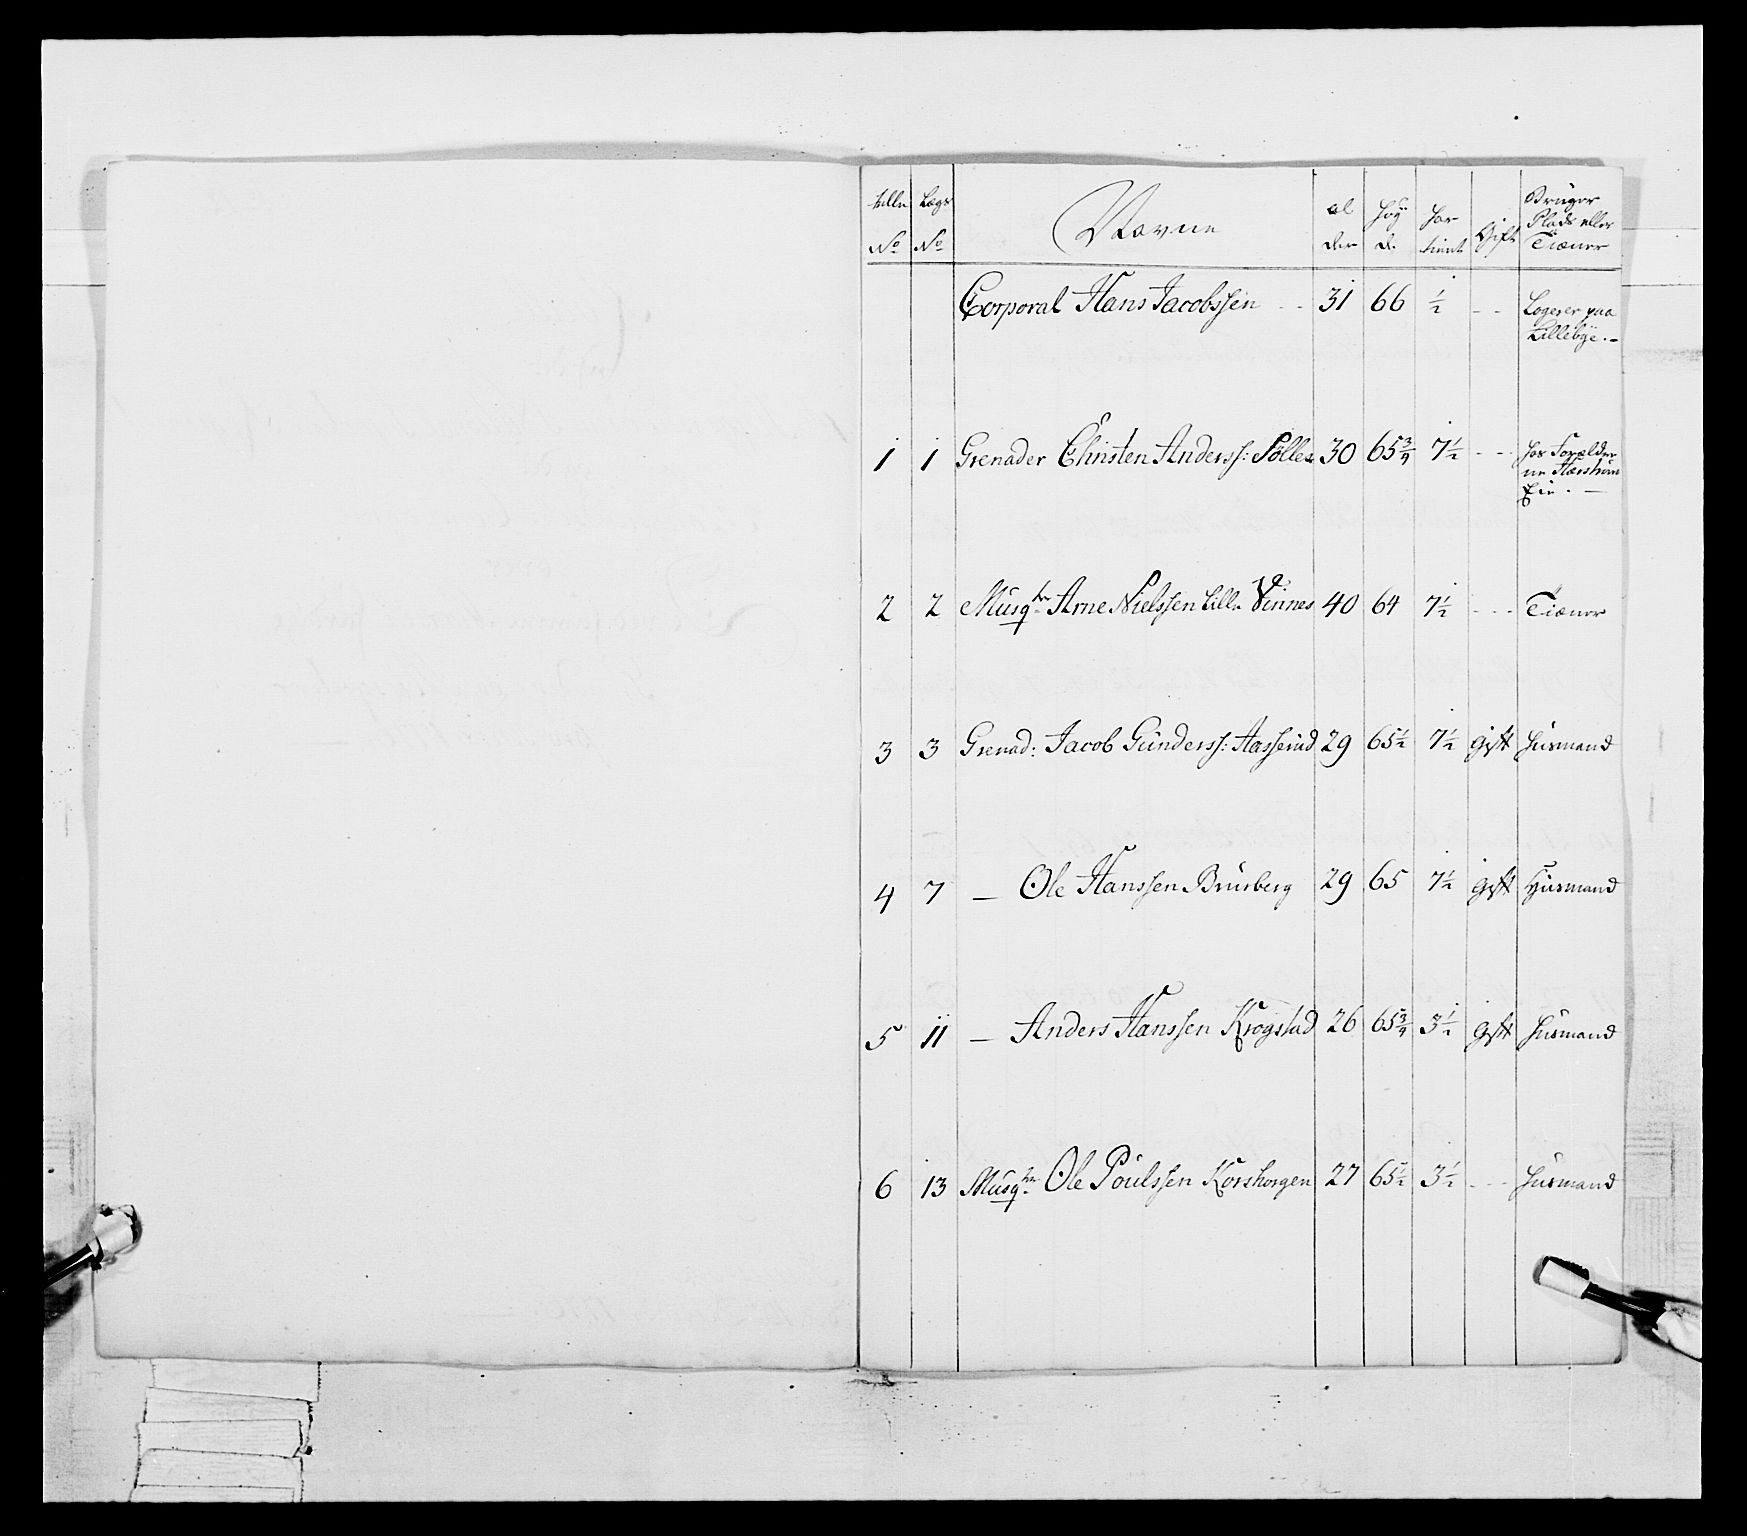 Tølle Lægs Navne al Høÿ Har Gift Bruger
No No der de tient Plads eller
Tiæner
Corporal Hans Jacobssen - - 31 66 ½ - - Logerer paa
Lillebÿe . -
1 1 Grenader Christen Anderss: Sølle 30 65¾ 7½ - - - hos Forældre
ne
Eie . -
2 2 Musqtr Arne Nielssen Lille Vinnes 40 64 7½ - - - Tiæner
3 3 Grenad: Jacob Gunderss: Aasserud 29 65½ 7½ gift Huusmand
4 7 — Ole Hanssen Bruberg 29 65 7½ gift Huusmand
5 11 — Anders Hanssen Krogstad 26 65¾ 3½ gift Huusmand
6 13 Musqtr Ole Poulssen Korshorgen 27 65½ 3½ - - - Huusmand